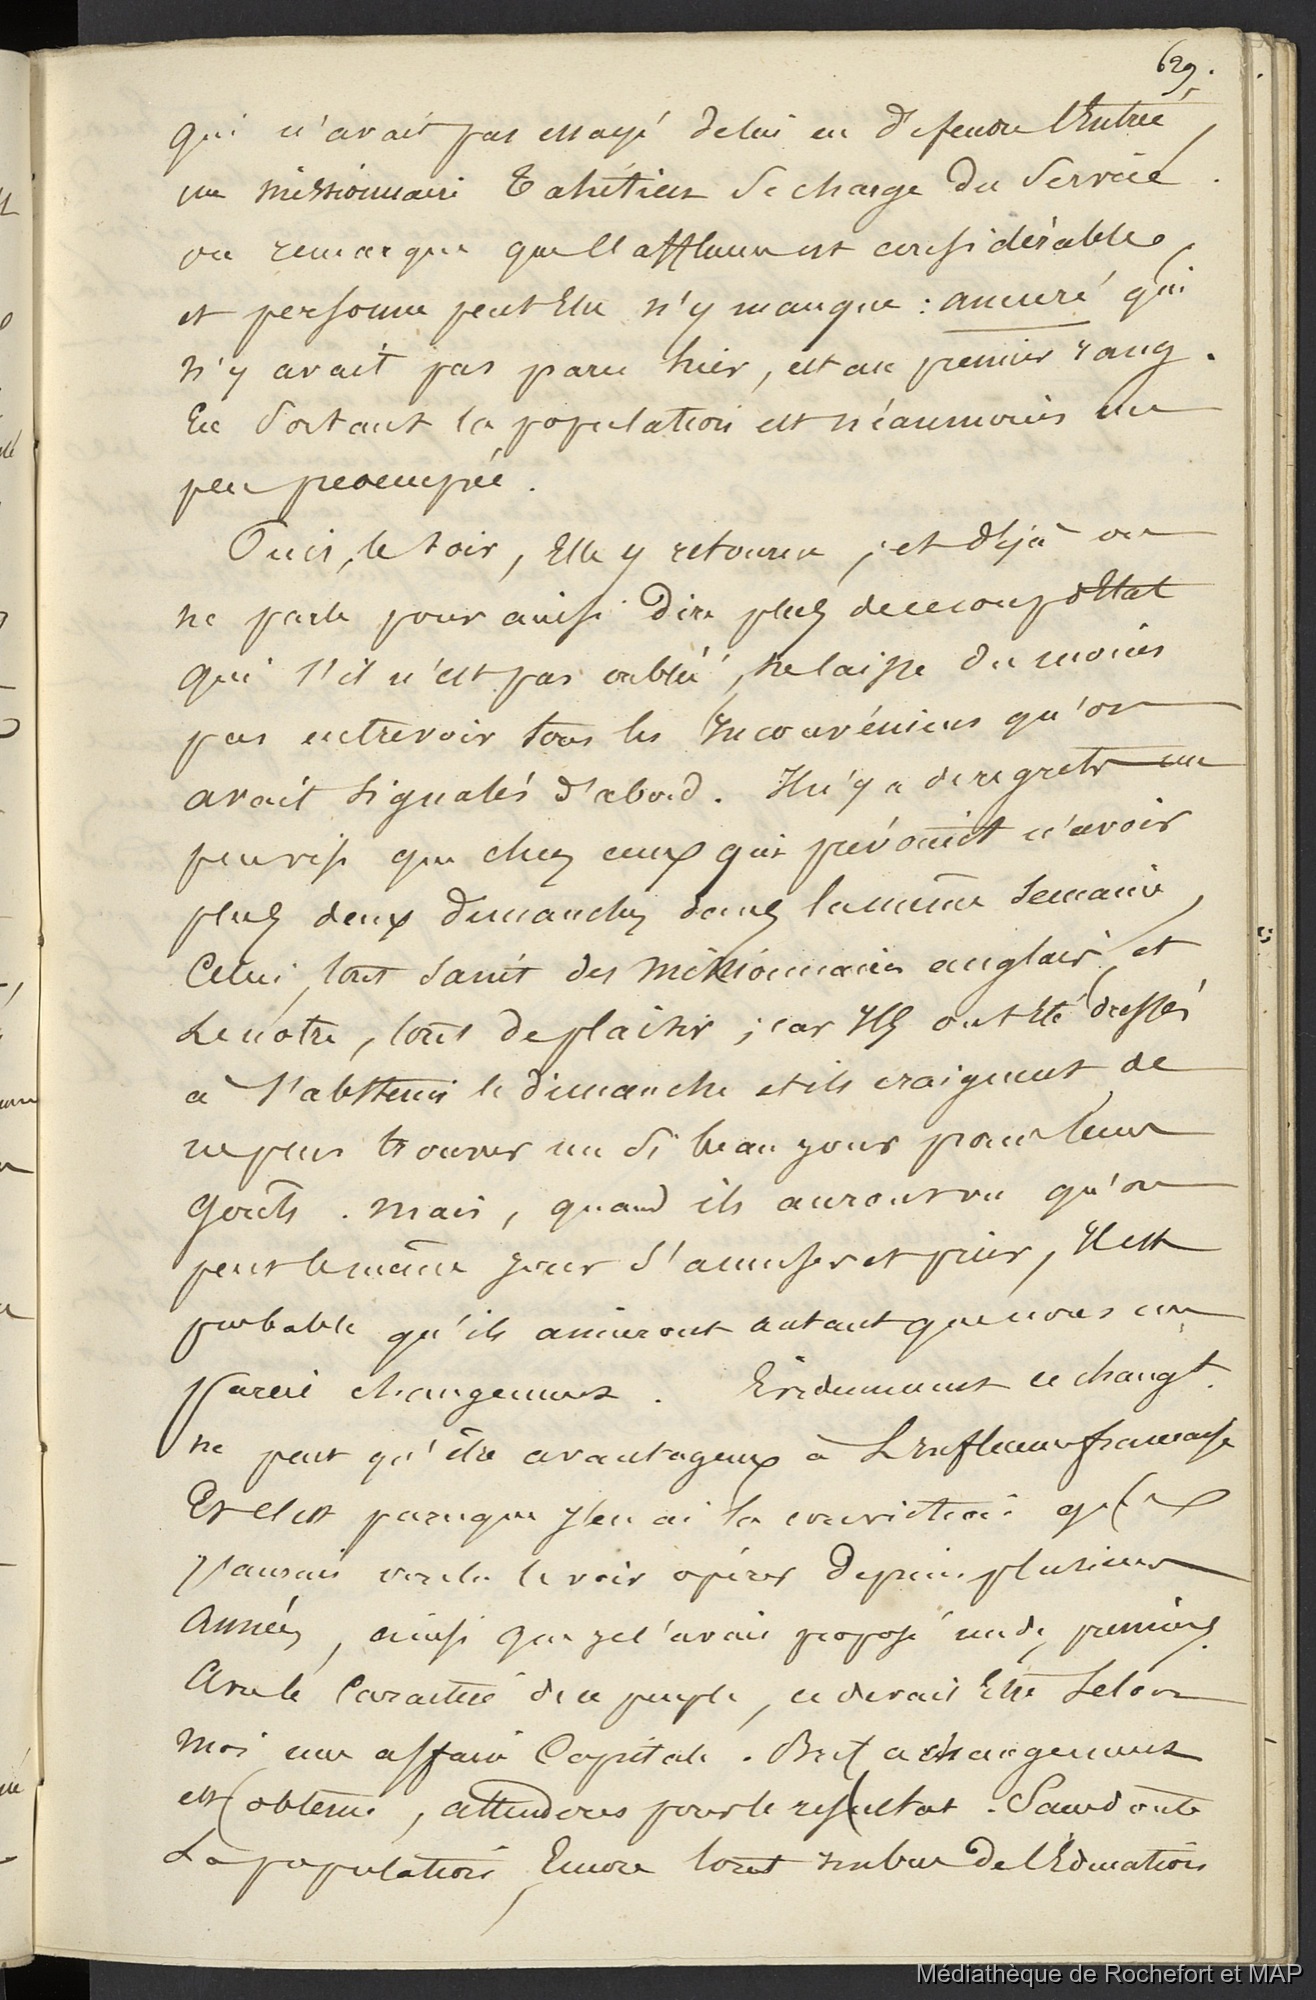 629.
qui n'avait pas essayé de lui en défendre l'Entrée,
un missionnaire Tahitien se charge du service.
on remarque que l'affluence est considérable,
et personne peut Etre n'y manque : anuuré qui
n'y avait pas paru hier, est au premier rang.
En sortant la population est néanmoins un
peu préoccupée.
Puis, le soir, Elle y retourne ; et déjà on
ne parle pour ainsi dire plus de ce coup d'Etat
qui s'il n'est pas oublié, ne laisse du moins
pas entrevoir tous les Inconvéniens qu'on
avait signalés d'abord. Il n'y a de regrets un
peu vifs que chez ceux qui prévoient n'avoir
plus deux dimanches dans la même semaine,
Celui, tout saint des missionnaires anglais, et
Le notre, tout de plaisir ; car Ils ont Eté dressés
à s'abstenir le dimanche et ils craignent de
ne plus trouver un si beau jour pour leurs
goûts. mais, quand ils auront vu qu'on
peut le même jour s'amuser et prier, Il est
probable qu'ils aimeront autant que nous un
pareil changement. Evidemment ce changt.
ne peut qu'être avantageux à L'Influence française
Et c'est parceque j'en ai la conviction que
j'aurais voulu le voir opérer depuis plusieurs
Années, ainsi que je l'avais proposé un des premiers.
Avec le Caractère de ce peuple, ce devait Etre selon
moi une affaire Capitale. Bref ce changement
est obtenu, attendons pour le resultat. Sans doute
La population, Encore tout imbue de l'Education
Médiathèque de Rochefort et MAP